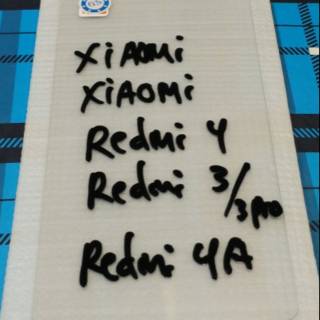 XiAOMi
XiAOMi
Redmi 4
Redmi 3/3pro
Redmi 4A